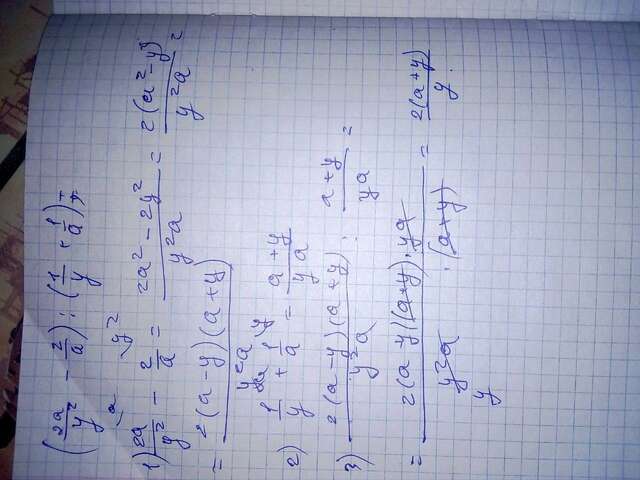 (2a/y² - 2/a) : (1/y + 1/a) =
1) 2a/y² - 2/a = (2a² - 2y²)/(y²a) = 2(a² - y²)/(y²a) =
= 2(a-y)(a+y)/(y²a)
2) 1/y + 1/a = (a+y)/(ya)
3) 2(a-y)(a+y)/(y²a) : (a+y)/(ya) =
= 2(a-y)(a+y)·ya/(y²a·(a+y)) = 2(a+y)/y.